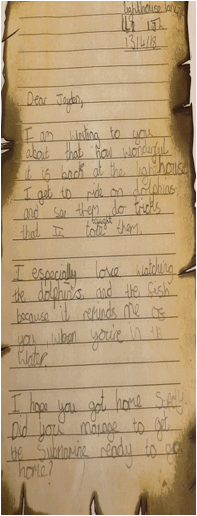 Lighthouse
13/4/18
Dear Jaydon,
I am writing to you
about that how wonderful
it is back at the lighthouse
I get to ride on dolphins
and see them do tricks
taught
that I them.
I especially love watching
the dolphins and the fish
because it reminds me of
you when you're in the
water.
I hope you got home
Did you manage to get
the Submarine ready to go
home?